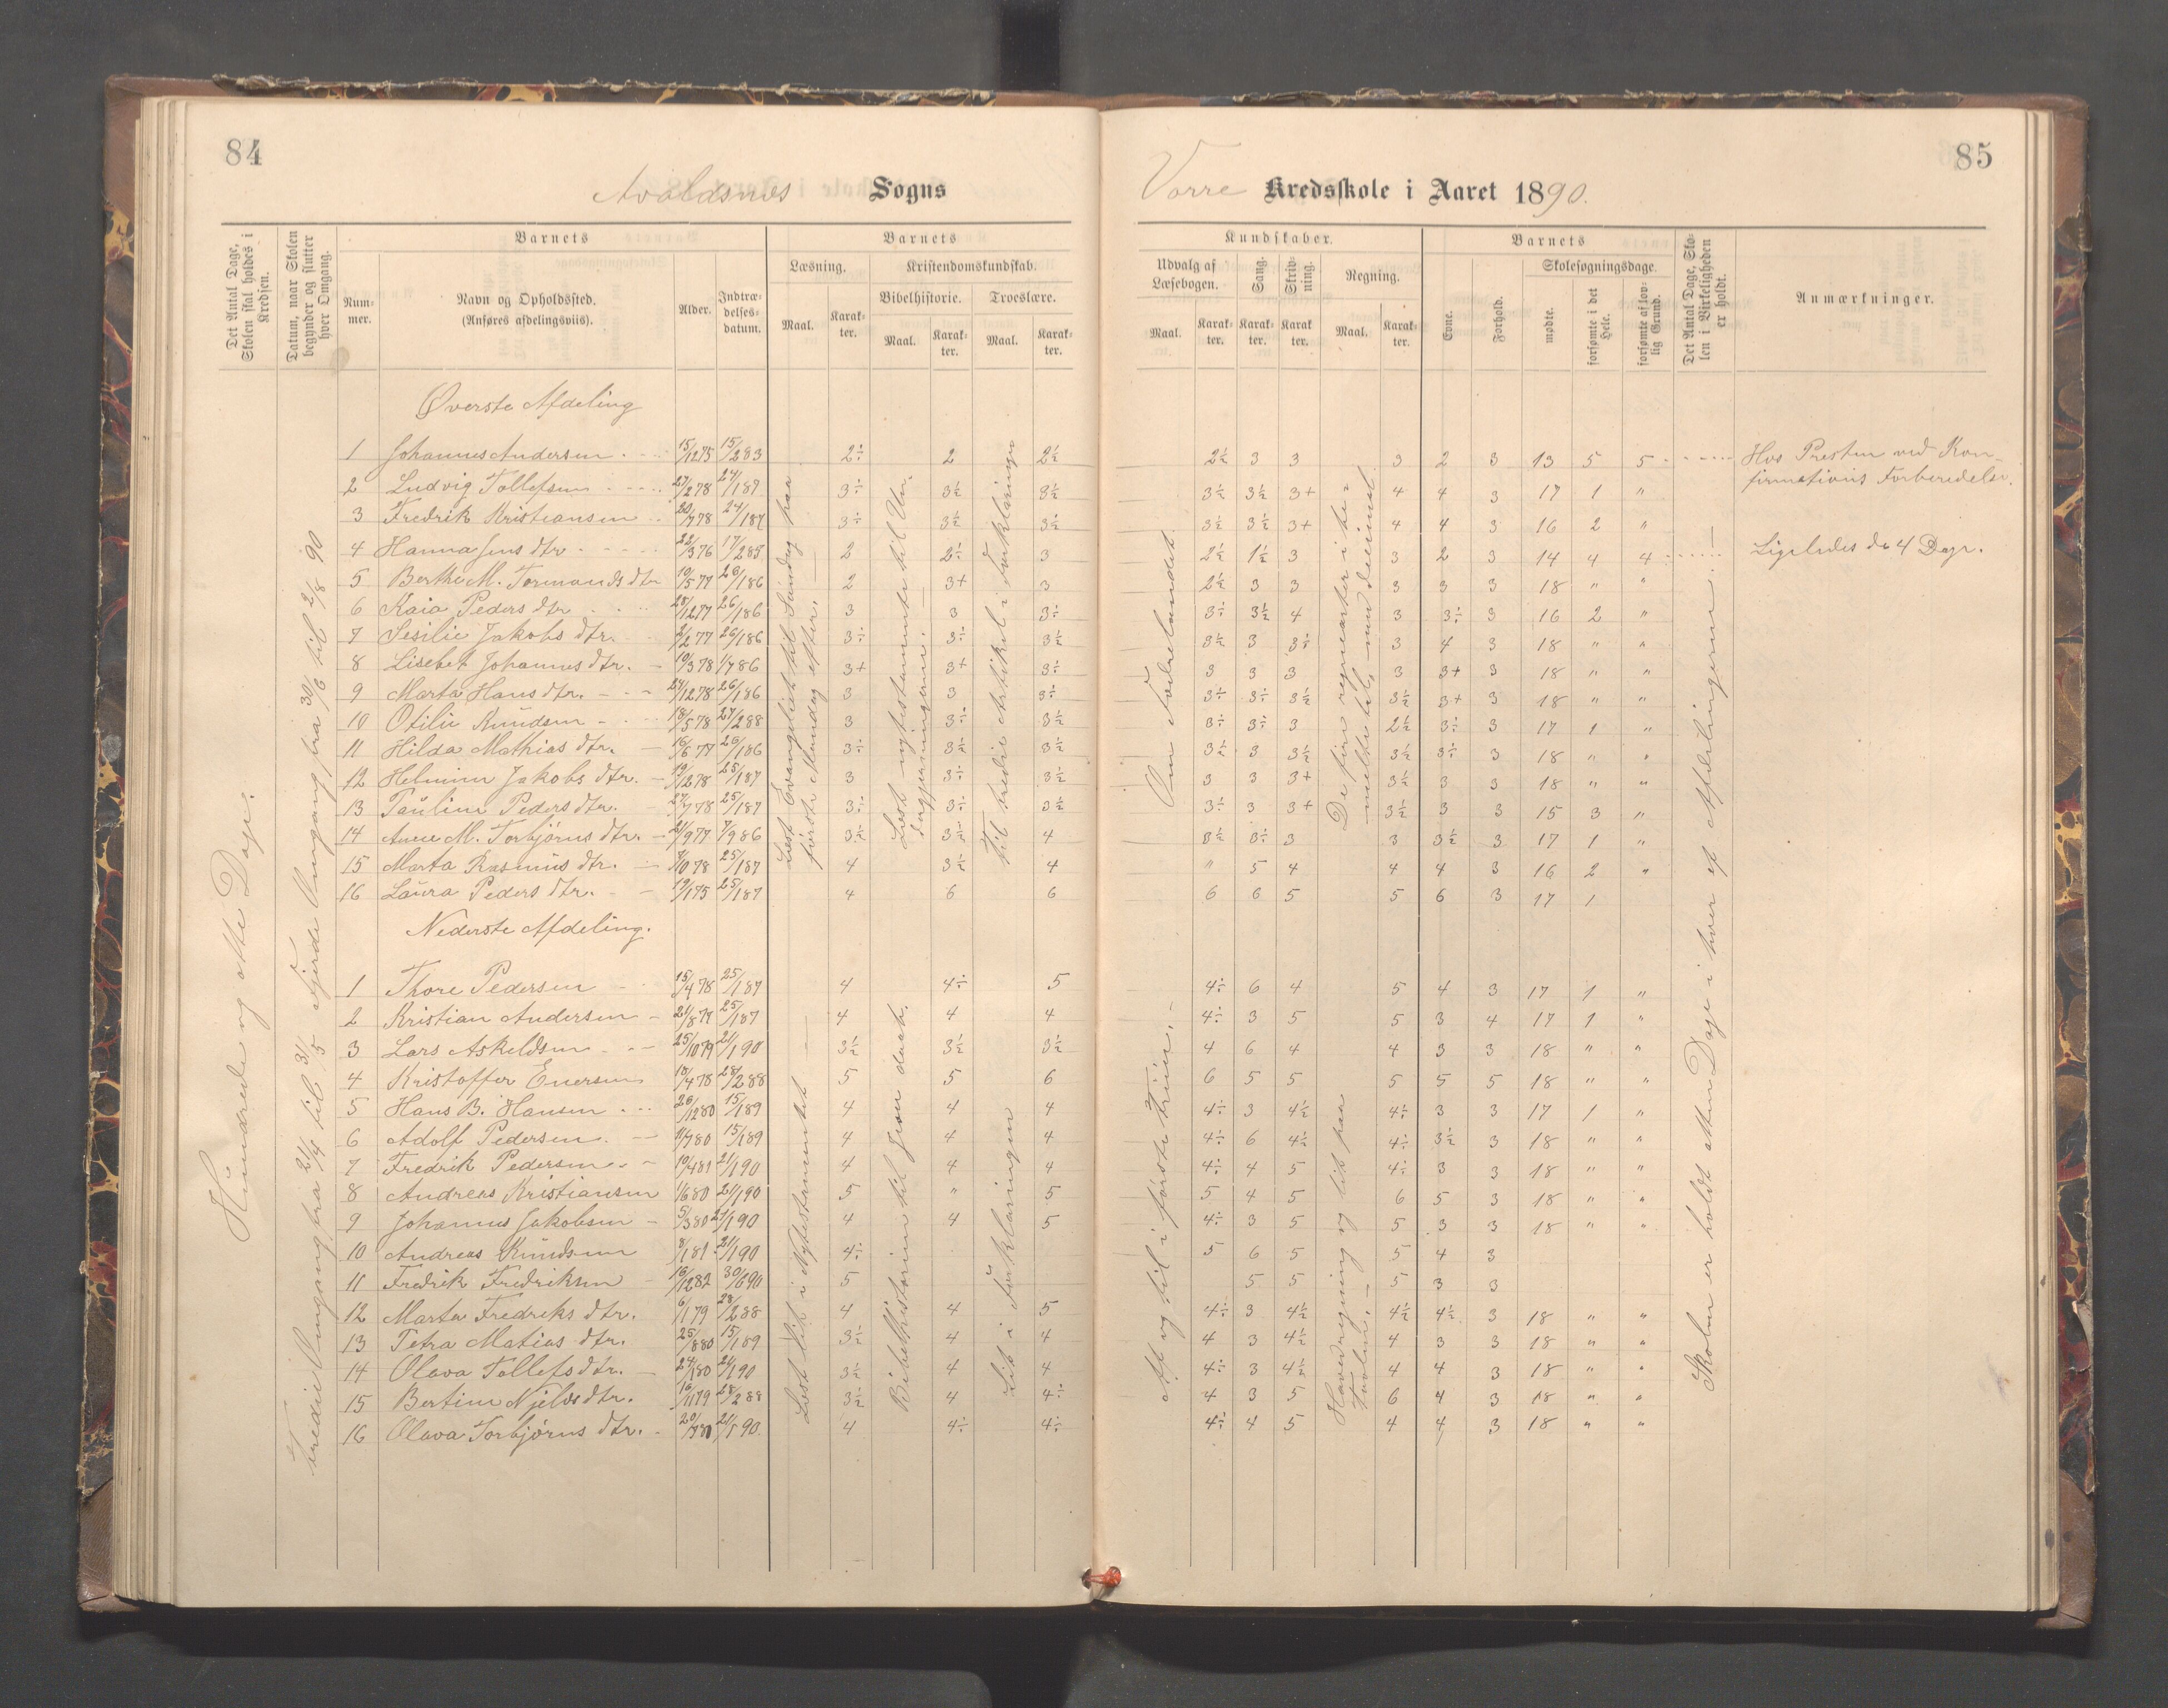 84
Avaldsnes Sogns
Det Antal Dage, Skolen skal holdes i Kredsen.
Datum, naar Skolen begynder og slutter hver Omgang.
Barnets
Nummer.
Navn og Opholdssted.
(Anføres afdelingsviis).
Alder.
Indtrædelses-datum.
Barnets
Læsning.
Maal.
Karakter.
Kristendomskundskab.
Bibelhistorie.
Maal.
Karakter.
Troeslære.
Maal.
Karakter.
Hundrede og otte Dage.
Tredie Omgang fra 21/4 til 31/5 Fjerde Omgang fra 30/6 til 2/8 90
Øverste Afdeling
1 Johannes Andersen 15/1275 15/283 2÷ 2 2½
2 Ludvig Tollefsen 27/278 24/187 3÷ 3½ 3½
3 Fredrik Kristiansen 20/778 24/187 3÷ 3½ 3½
4 Hanna Jens dtr 22/376 17/285 2 2÷ 3
5 Berthe M. Tormands dtr 10/577 26/186 2 3+ 3
6 Kaia Peders dtr 28/1277 26/186 3 3 3÷
7 Sesilie Jakobs dtr. 2/277 26/186 3÷ 3÷ 3½
8 Lisebet Johannes dtr. 10/378 1/786 3+ 3+ 3÷
9 Marta Hans dtr. 24/1278 26/186 3 3 3÷
10 Otilie Knudsen 18/578 27/288 3 3÷ 3½
11 Hilda Mathias dtr. 16/677 26/186 3÷ 3½ 3½
12 Helmine Jakobs dtr. 19/1278 25/187 3 3÷ 3½
13 Pauline Peders dtr. 27/778 25/187 3÷ 3÷ 3½
14 Anne M. Torbjørns dtr. 21/977 7/986 3½ 3½ 4
15 Marta Rasmus dtr. 7/1078 25/187 4 3½ 4
16 Laura Peders dtr. 19/175 25/187 4 6 6
Læst Evangeliet til Søndag paa første Mandag efter.
Læst nytestamente til Undergjerningerne.
Til tredie Artikel i Forklaringen
Nederste Afdeling.
1 Thore Pedersen 15/478 25/187 4 4÷ 5
2 Kristian Andersen 21/877 25/187 4 4 4
3 Lars Askeldsen 25/1079 21/190 3½ 3½ 3½
4 Kristoffer Enersen 18/478 28/288 5 5 6
5 Hans B. Hansen 26/1280 15/189 4 4 4
6 Adolf Pedersen 11/780 15/189 4 4 4
7 Fredrik Pedersen 10/481 21/190 4 4 4
8 Andreas Kristiansen 1/680 21/190 5 " 5
9 Johannes Jakobsen 5/380 21/190 4 4 5
10 Andreas Knudsen 8/181 21/190 4÷
11 Fredrik Fredriksen 16/1282 30/690 5
12 Marta Fredriks dtr. 6/179 28/288 4 4 5
13 Petra Matias dtr. 25/880 15/189 3½ 4 4
14 Olava Tollefs dtr. 24/180 21/190 3½ 4 4
15 Bertine Njelds dtr. 16/1179 28/288 3½ 4 4÷
16 Olava Torbjørns dtr. 20/780 21/190 4 4÷ 4÷
Læst lidt i Nytestamentet
Bibelhistorien til Jesu daab.
Lidt i Forklaringen
85
Vorre Kredsskole i Aaret 1890.
Kundskaber.
Udvalg af Læsebogen.
Maal.
Karakter.
Sang.
Karakter.
Skrivning.
Karakter.
Regning.
Maal.
Karakter.
Barnets
Evne.
Forhold.
Skolesøgningsdage.
mødte.
forsømte i det Hele.
forsømte af lovlig Grund.
Det Antal Dage, Skolen i Virkeligheden er holdt.
Anmærkninger.
2½ 3 3 3 2 3 13 5 5 Hos Presten ved Konfirmations Forberedelse.
3½ 3½ 3+ 4 4 3 17 1 "
3½ 3½ 3+ 4 4 3 16 2 "
2½ 1½ 3 3 2 3 14 4 4 Ligeledes de 4 Dage.
2½ 3 3 3 3 3 18 " "
3÷ 3½ 4 3 3÷ 3 16 2 "
3½ 3 3÷ 3 4 3 18 " "
3 3 3 3 3+ 3 18 " "
3÷ 3÷ 3½ 3½ 3+ 3 18 " "
3÷ 3÷ 3 2½ 3÷ 3 17 1 "
3½ 3 3½ 3½ 3÷ 3 18 " "
3 3 3+ 3½ 3 3 18 " "
3÷ 3 3+ 3½ 3 3 15 3 "
3½ 3÷ 3 3 3½ 3 17 1 "
" 5 4 4 4 3 16 2 "
6 6 5 5 6 3 17 1
Om Fædrelandet.
De fire regnearter i benævnte tal, med decimal
4÷ 6 4 5 4 3 17 1 "
4÷ 3 5 5 3 4 17 1 "
4 6 4 4 3 3 18 " "
6 5 5 5 5 5 18 " "
4÷ 3 4½ 4÷ 3 3 17 1 "
4÷ 6 4½ 4÷ 3½ 3 18 " "
4÷ 4 5 4÷ 3 3 18 " "
5 4 5 6 5 3 18 " "
4÷ 3 5 5 3 3 18 " "
5 6 5 5 4 3
5 5 5 3 3
4÷ 3 4½ 4½ 4½ 3 18 " "
4 3 4½ 4 3 3 18 " "
4÷ 3 4½ 4 4 3 18 " "
4 3 5 6 4 3 18 " "
4÷ 4 5 4 4 3 18 " "
Af og til i første Trin.
Hovedregning og lidt paa Tavlen.
Skolen er holdt atten Dage i hver af Afdelingerne.